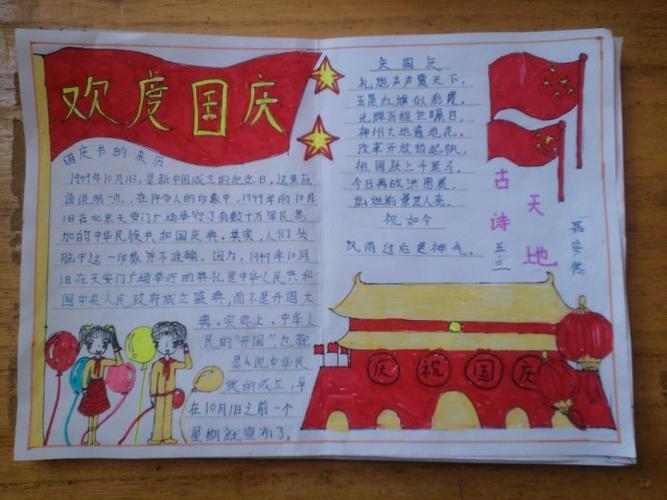 欢度国庆
国庆节的来历
1949年10月1日,是新中国成立的纪念日。这里应
该说明一点,在许多人的印象中,1949年的10月
1日在北京天安门广场举行了有数十万军民参
加的中华民族共和国庆典。其实,人们头
脑中这一印象并不准确。因为,1949年10月
1日在天安门广场举行的典礼是中华人民共和
国中央人民政府成立盛典,而不是开国大
典。实际上,中华人
民的"开国",也就
是说中华民
族的成立,早
在10月1日之前一个
星期就宣布了。
庆国庆
礼炮声声震天下,
五星红旗似彩霞。
光辉历程世瞩目,
神州大地遍地花。
改革开放扬起帆,
祖国跃上千里马。
今日再战洪图展,
祝如今
风雨过后更神气。
古诗
天地
五.二
庆祝国庆